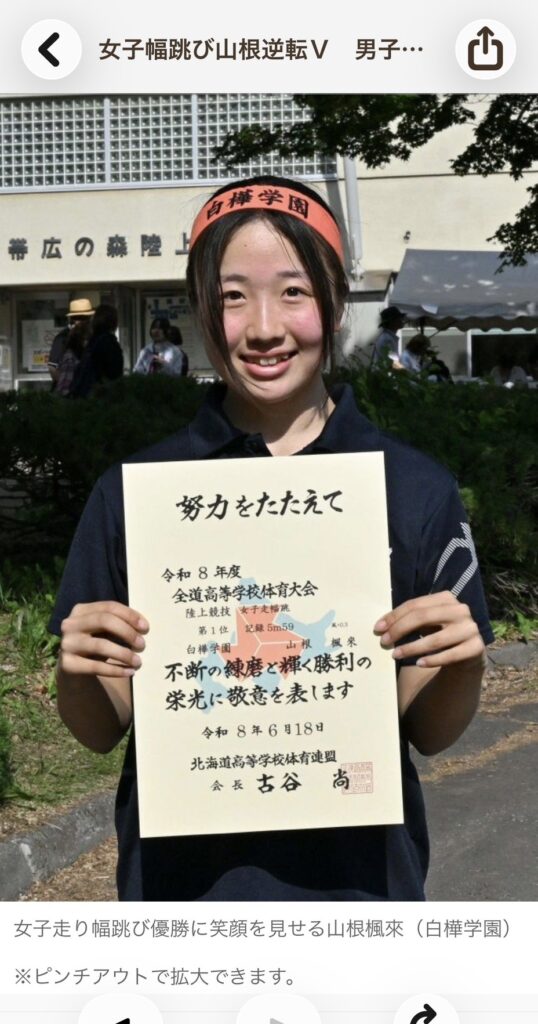 女子幅跳び山根逆転Ｖ　男子…
白樺学園
帯広の森陸上
努力をたたえて
令和８年度
全道高等学校体育大会
陸上競技 女子走幅跳
第１位 記録5m59 風+0.3
白樺学園 山根 楓來
不断の練磨と輝く勝利の
栄光に敬意を表します
令和８年６月18日
北海道高等学校体育連盟
会長 古谷 尚
女子走り幅跳び優勝に笑顔を見せる山根楓來（白樺学園）
※ピンチアウトで拡大できます。